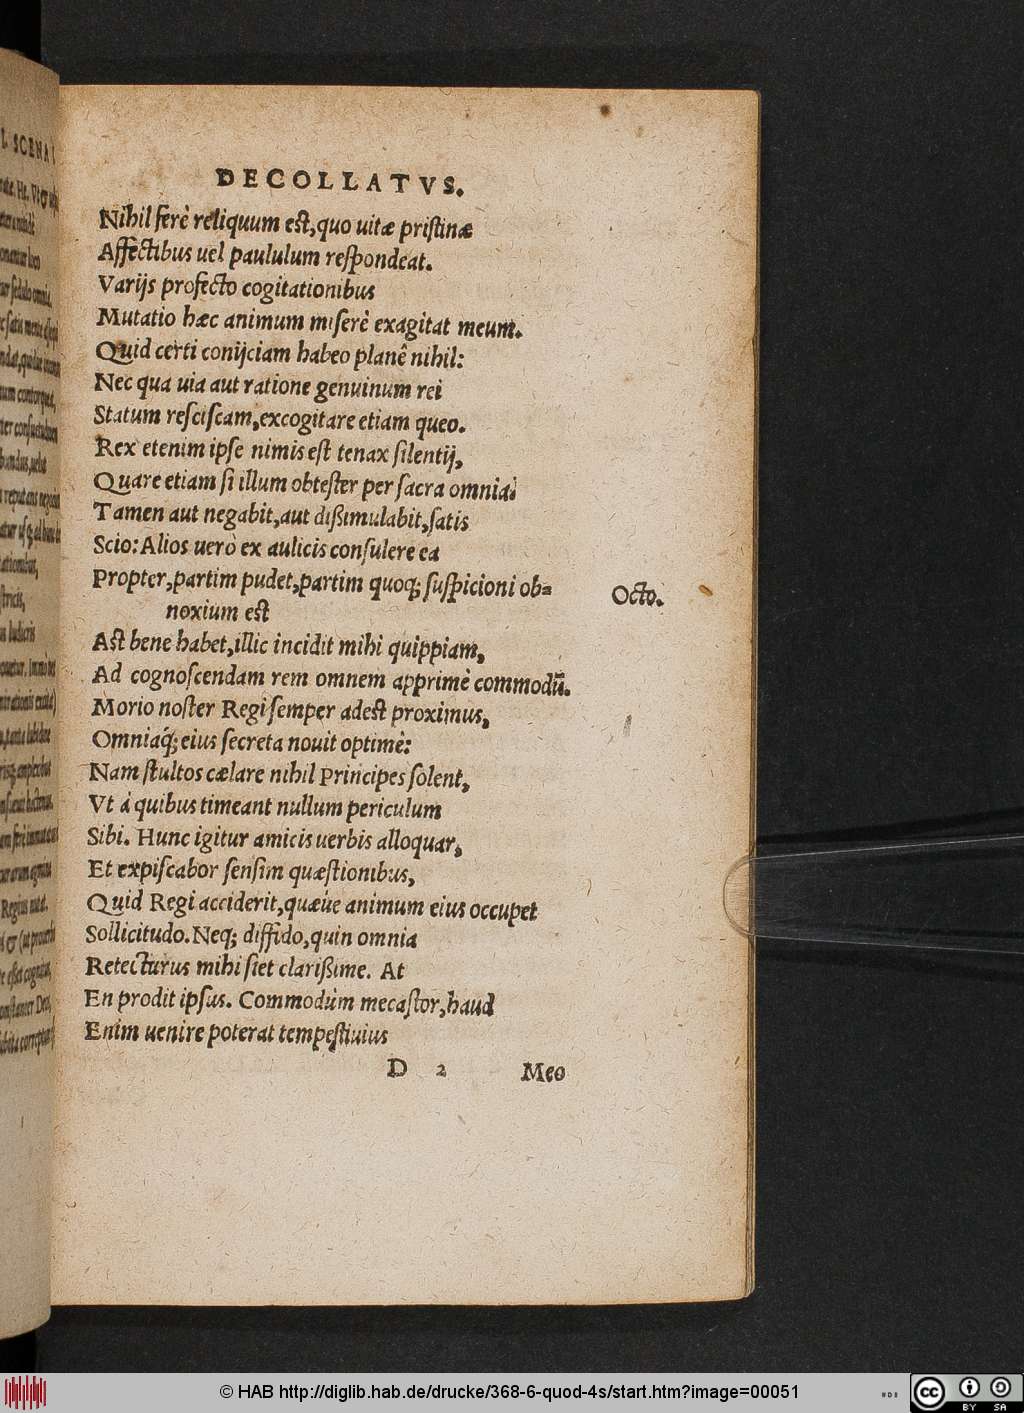 DECOLLATVS.
Nihil ferè reliquum est, quo uitæ pristinæ
Affectibus uel paululum respondeat.
Varijs profecto cogitationibus
Mutatio hæc animum miserè exagitat meum.
Quid certi conijciam habeo planê nihil:
Nec qua uia aut ratione genuinum rei
Statum resciscam, excogitare etiam queo.
Rex etenim ipse nimis est tenax silentij,
Quare etiam si illum obtester per sacra omnia:
Tamen aut negabit, aut dißimulabit, satis
Scio: Alios uerò ex aulicis consulere ea
Propter, partim pudet, partim quoq; suspicioni ob=
noxium est
Octo.
Ast bene habet, illic incidit mihi quippiam,
Ad cognoscendam rem omnem apprimè commodū.
Morio noster Regi semper adest proximus,
Omniaq́; eius secreta nouit optimè:
Nam stultos cælare nihil Principes solent,
Vt à quibus timeant nullum periculum
Sibi. Hunc igitur amicis uerbis alloquar,
Et expiscabor sensim quæstionibus,
Quid Regi acciderit, quæue animum eius occupet
Sollicitudo. Neq; diffido, quin omnia
Retecturus mihi siet clarißime. At
En prodit ipsus. Commodùm mecastor, haud
Enim uenire poterat tempestiuius
D 2 Meo
© HAB http://diglib.hab.de/drucke/368-6-quod-4s/start.htm?image=00051
CC BY SA